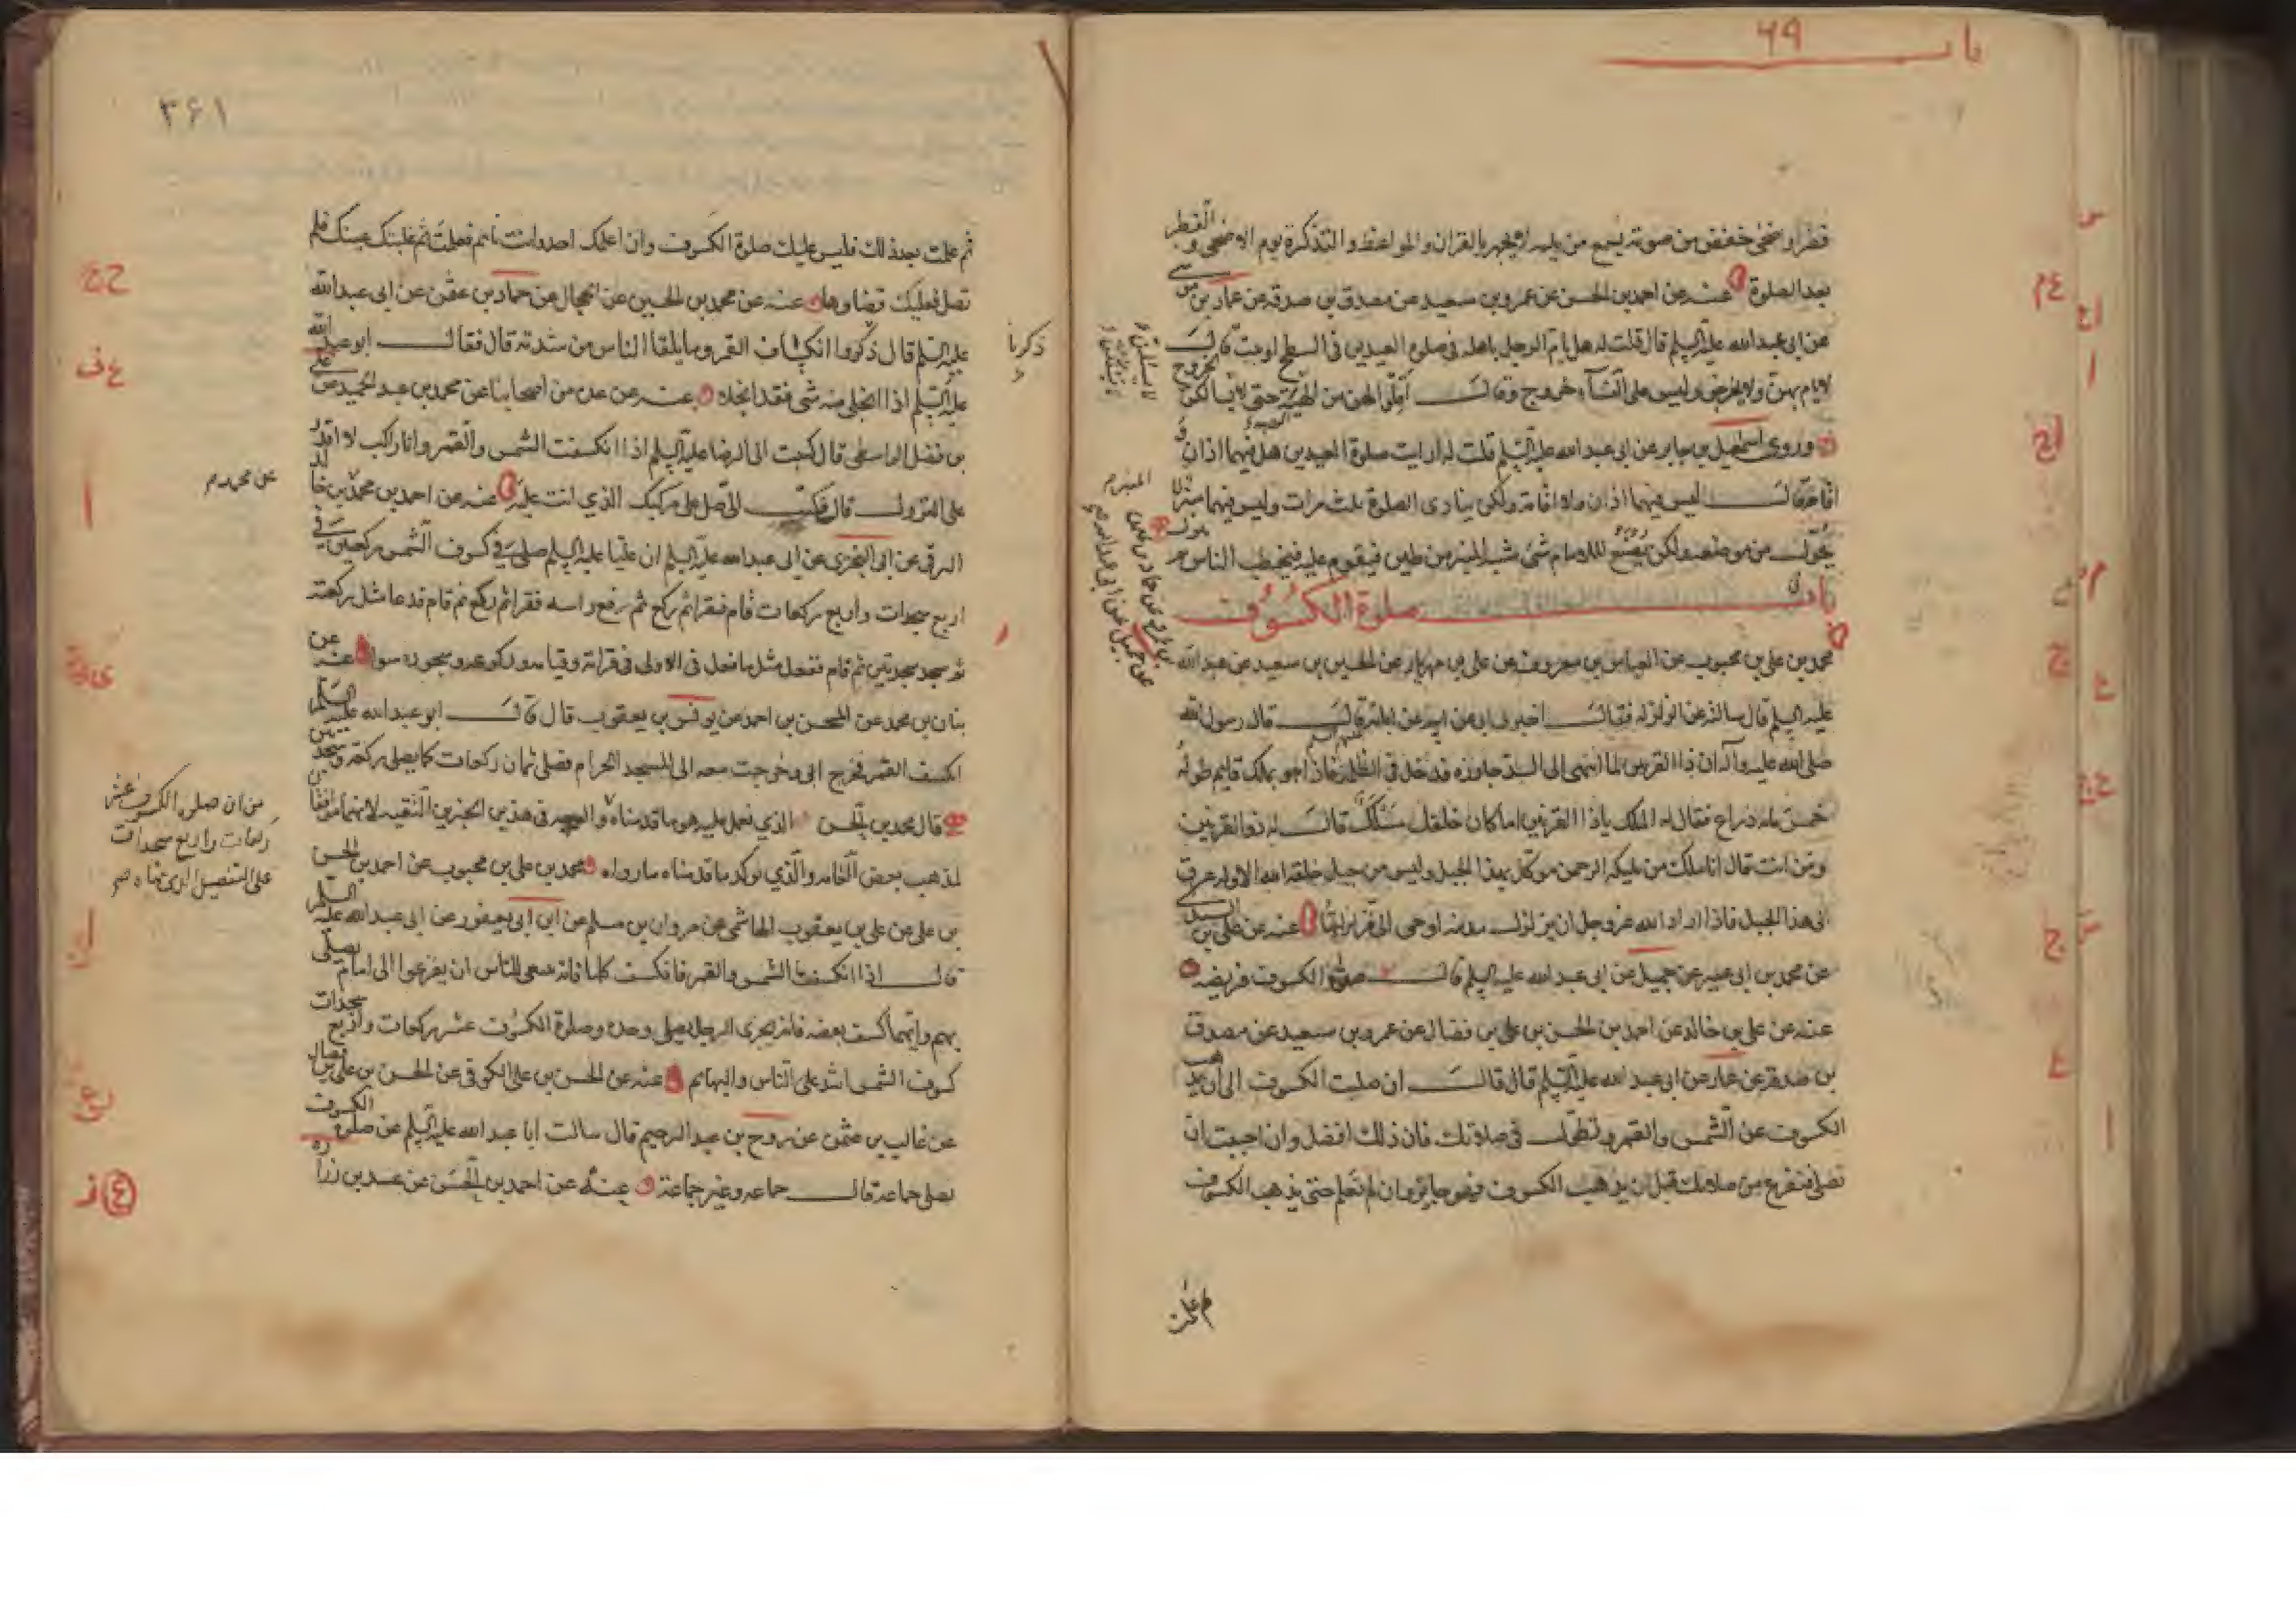 باب ٤٩
فطر او ضحى خفض من صوته يسمع من يليه لا يجهر بالقران والمواعظ والتذكرة يوم الاضحى والفطر
بعد الصلوة عنه عن احمد بن الحسن عن عمرو بن سعيد عن مصدق بن صدقه عن عمار بن موسى
عن ابى عبد الله عليه السلم قال قلت له هل يام الرجل باهله فى صلوة العيدين فى السطح او بيت قال
لا يام بهن ولا يخرجن وليس على النساء خروج وقال اقلوا لهن من الهيئة حتى لا يسالن الخروج
وروى اسمعيل بن جابر عن ابى عبد الله عليه السلم قلت له ارايت صلوة العيدين هل فيهما اذان و
اقامة قال ليس فيهما اذان ولا اقامة ولكن ينادى الصلوة ثلث مرات وليس فيهما منبر
يحول من موضعه ولكن يصنع للامام شئ شبه المنبر من طين فيقوم عليه فيخطب الناس
باب صلوة الكسوف
محمد بن على بن محبوب عن العباس بن معروف عن على بن مهزيار عن الحسين بن سعيد عن عبد الله
عليه السلم قال سالته عن الزلزلة فقال اخبرنى ابى عن ابيه عن ابائه قال قال رسول الله
صلى الله عليه وآله ان ذا القرنين لما انتهى الى السد جاوزه فدخل فى الظلمة فاذا هو بملك قايم طوله
خمس مائة ذراع فقال له الملك ياذا القرنين اما كان خلفك مسلك قال له ذوالقرنين
ومن انت قال انا ملك من مليكه الرحمن موكل بهذا الجبل وليس من جبل خلقه الله الا وله عرق
الى هذا الجبل فاذا اراد الله عز وجل ان يزلزل مدينه اوحى الى فزلزلتها عنه عن على بن
عن محمد بن ابى عمير عن جميل عن ابى عبد الله عليه السلم قال صلوة الكسوف فريضه
عنه عن على بن خالد عن احمد بن الحسن بن على بن فضال عن عمرو بن سعيد عن مصدق
بن صدقة عن عمار عن ابى عبد الله عليه السلم قال قال ان صليت الكسوف الى ان يذهب
الكسوف عن الشمس والقمر وتطول فى صلاتك فان ذلك افضل وان احببت ان
تصلى فتفرغ من صلاتك قبل ان يذهب الكسوف فهو جايز وان لم تعلم حتى يذهب الكسوف
ثم علمت
٣٦١
ثم علمت بعد ذلك فليس عليك صلوة الكسوف وان اعلمك احد وانت نايم فعلمت ثم غلبتك عينك فلم
تصل فعليك قضاوها عنه عن محمد بن الحسين عن الحجال عن حماد بن عثمن عن ابى عبد الله
عليه السلم قال ذكروا انكساف القمر وما يلقا الناس من شدته قال فقال ابو عبد الله
عليه السلم اذا انجلى منه شى فقد انجلا عنه عن عدة من اصحابنا عن محمد بن عبد الحميد عن على
بن فضل الواسطى قال كتبت الى الرضا عليه السلم اذا انكسفت الشمس والقمر وانا راكب لا اقدر
على النزول قال فكتب الى صل على مركبك الذي انت عليه عنه عن احمد بن محمد بن خالد
البرقى عن ابى البخترى عن ابى عبد الله عليه السلم ان عليا عليه السلم صلى فى كسوف الشمس ركعتين فى
اربع سجدات واربع ركعات قام فقرا ثم ركع ثم رفع راسه فقرا ثم ركع ثم قام فدعا مثل ركعته
ثم سجد سجدتين ثم قام ففعل مثل ما فعل فى الاولى فى قرائته وقيامه وركوعه وسجوده سوا عنه عن
بنان بن محمد عن المحسن بن احمد عن يونس بن يعقوب قال قال ابو عبد الله عليه السلم
انكسف القمر فخرج ابى وخرجت معه الى المسجد الحرام فصلى ثمان ركعات كما يصلى ركعة وسجدتين
قال محمد بن الحسن الذي نعمل عليه هو ما قدمناه والوجه فى هذين الخبرين التقيه لانهما موافقان
لمذهب بعض العامه والذي يؤكد ما قدمناه ما رواه محمد بن على بن محبوب عن احمد بن الحسن
بن على عن على بن يعقوب الهاشمى عن مروان بن مسلم عن ابن ابى يعفور عن ابى عبد الله عليه السلم
قال اذا انكسفت الشمس والقمر فانكسف كلها فانه ينبغى للناس ان يفزعوا الى امام يصلى
بهم وايهما كسف بعضه فانه يجزى الرجل يصلى وحده وصلوة الكسوف عشر ركعات واربع سجدات
كسوف الشمس اشد على الناس والبهايم عنه عن الحسن بن على الكوفى عن الحسن بن على بن فضال
عن غالب بن عثمن عن روح بن عبد الرحيم قال سالت ابا عبد الله عليه السلم عن صلوة الكسوف
يصلى جماعة قال جماعة وغير جماعة عنه عن احمد بن الحسن عن عبد بن زرارة
ذكرنا
عن محمد م
من ان صلوة الكسوف عشر
ركعات واربع سجدات
على التفصيل الذى بيناه صح